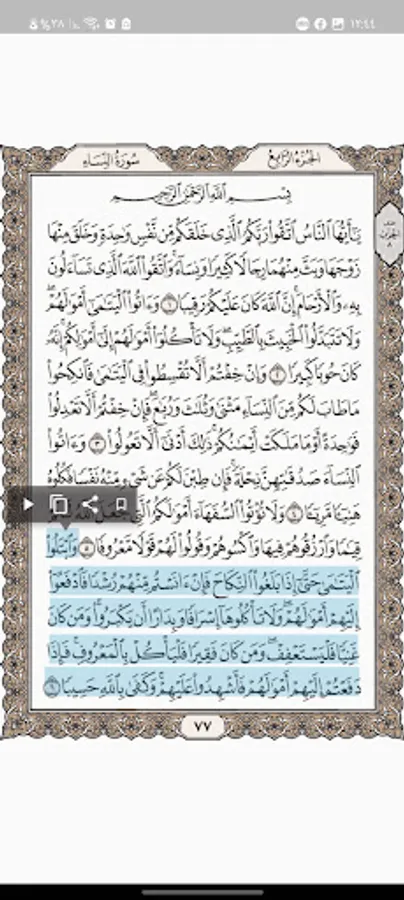 ٣٨%
١٢:٤٤
سُورَةُ النِّسَاءِ
الجُزْءُ الرَّابِعُ
بِسْمِ اللَّهِ الرَّحْمَٰنِ الرَّحِيمِ
يَٰٓأَيُّهَا النَّاسُ اتَّقُوا رَبَّكُمُ الَّذِي خَلَقَكُم مِّن نَّفْسٍ وَٰحِدَةٍ وَخَلَقَ مِنْهَا
زَوْجَهَا وَبَثَّ مِنْهُمَا رِجَالًا كَثِيرًا وَنِسَآءً وَاتَّقُوا اللَّهَ الَّذِي تَسَآءَلُونَ
بِهِۦ وَالْأَرْحَامَ إِنَّ اللَّهَ كَانَ عَلَيْكُمْ رَقِيبًا ١ وَءَاتُوا الْيَتَٰمَىٰٓ أَمْوَٰلَهُمْ
وَلَا تَتَبَدَّلُوا الْخَبِيثَ بِالطَّيِّبِ وَلَا تَأْكُلُوٓا أَمْوَٰلَهُمْ إِلَىٰٓ أَمْوَٰلِكُمْ إِنَّهُۥ
كَانَ حُوبًا كَبِيرًا ٢ وَإِنْ خِفْتُمْ أَلَّا تُقْسِطُوا فِي الْيَتَٰمَىٰ فَانكِحُوا
مَا طَابَ لَكُم مِّنَ النِّسَآءِ مَثْنَىٰ وَثُلَٰثَ وَرُبَٰعَ فَإِنْ خِفْتُمْ أَلَّا تَعْدِلُوا
فَوَٰحِدَةً أَوْ مَا مَلَكَتْ أَيْمَٰنُكُمْ ذَٰلِكَ أَدْنَىٰٓ أَلَّا تَعُولُوا ٣ وَءَاتُوا
النِّسَآءَ صَدُقَٰتِهِنَّ نِحْلَةً فَإِن طِبْنَ لَكُمْ عَن شَيْءٍ مِّنْهُ نَفْسًا فَكُلُوهُ
هَنِيٓـًٔا مَّرِيٓـًٔا ٤ وَلَا تُؤْتُوا السُّفَهَآءَ أَمْوَٰلَكُمُ الَّتِي جَعَلَ اللَّهُ
قِيَٰمًا وَارْزُقُوهُمْ فِيهَا وَاكْسُوهُمْ وَقُولُوا لَهُمْ قَوْلًا مَّعْرُوفًا ٥ وَابْتَلُوا
الْيَتَٰمَىٰ حَتَّىٰٓ إِذَا بَلَغُوا النِّكَاحَ فَإِنْ ءَانَسْتُم مِّنْهُمْ رُشْدًا فَادْفَعُوٓا
إِلَيْهِمْ أَمْوَٰلَهُمْ وَلَا تَأْكُلُوهَآ إِسْرَافًا وَبِدَارًا أَن يَكْبَرُوا وَمَن كَانَ
غَنِيًّا فَلْيَسْتَعْفِفْ وَمَن كَانَ فَقِيرًا فَلْيَأْكُلْ بِالْمَعْرُوفِ فَإِذَا
دَفَعْتُمْ إِلَيْهِمْ أَمْوَٰلَهُمْ فَأَشْهِدُوا عَلَيْهِمْ وَكَفَىٰ بِاللَّهِ حَسِيبًا ٦
٧٧